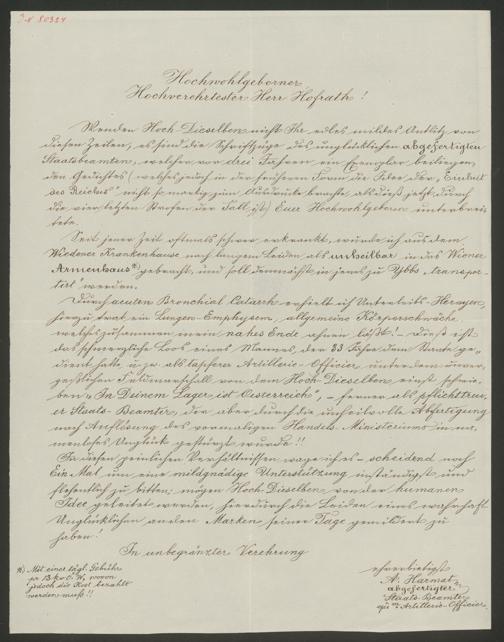 J.N 80324
Hochwohlgeborner
Hochverehrtester Herr Hofrath!
Wenden Hoch-Dieselben nicht Ihr edles mildes Antlitz von
diesen Zeilen, es sind die Schriftzüge des unglücklichen abgefertigten
Staatsbeamten, welcher vor drei Jahren ein Exemplar beiliegen-
den Gedichtes (welches jedoch in der früheren Form die Idee der „Einheit
des Reiches" nicht so zum Ausdrucke brachte als dieß jetzt durch
die vier letzten Strofen der Fall ist) Euer Hochwohlgeboren unterbrei-
tete.
Seit jener Zeit oftmals schwer erkrankt, wurde ich aus dem
Wiedner Krankenhause nach langem Leiden als unheilbar in das Wiener
Armenhaus *) gebracht, und soll demnächst in jenes zu Ybbs „transpor-
tirt" werden.
Durch acuten Bronchial Catarrh erhielt ich Unterleibs-
hiezu trat ein Lungen-Emphysem, allgemeine Körperschwäche
welches zusammen mein nahes Ende ahnen läßt. – Dieß ist
das schmerzliche Loos eines Mannes, der 33 Jahre dem Staate ge-
dient hatte, u. zw. als tapferer Artillerie-Officier, unter dem unver-
geßlichen von dem Hoch-Dieselben einst schrie-
ben „In Deinem Lager ist Oesterreich", – ferner als pflichttreu-
er Staats-Beamter, der aber durch die unheilvolle Abfertigung
nach Auflösung des vormaligen Handels-Ministeriums in na-
menloses Unglück gestürzt wurde!!
In diesen peinlichen Verhältnissen wage ich es – scheidend noch
Ein Mal um eine mildgnädige Unterstützung inständigst und
flehentlich zu bitten; mögen Hoch-Dieselben von der humanen
Idee geleitet werden hierdurch die Leiden eines wahrhaft
Unglücklichen an den Marken seiner Tage gemildert zu
haben!
In unbegränzter Verehrung
ehrerbietigst
A. Harmat
abgefertigter
Staats-Beamter
qu. Artillerie-Officier
*) Mit einer tägl. Gebühr
pr 13 kr Ö. W. wovon
jedoch die Kost bezahlt
werden muß!!